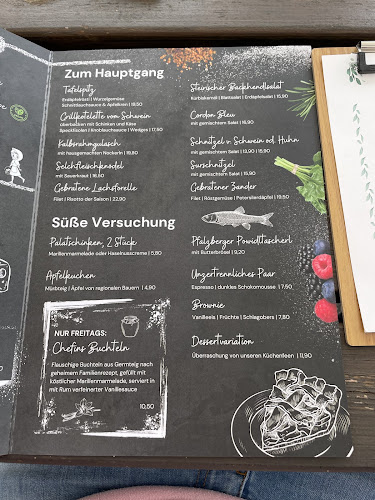 Zum Hauptgang
Tafelspitz
Erdäpfelrösti | Wurzelgemüse
Schnittlauchsauce & Apfelkren | 19,50
Grillkotelette vom Schwein
überbacken mit Schinken und Käse
Speckfisolen | Knoblauchsauce | Wedges | 17,50
Kalbsrahmgulasch
mit hausgemachten Nockerln | 19,90
Selchfleischknödel
mit Sauerkraut | 16,50
Gebratene Lachsforelle
Filet | Risotto der Saison | 22,90
Steirischer Backhendlsalat
Kürbiskernöl | Blattsalat | Erdäpfelsalat | 15,90
Cordon Bleu
mit gemischtem Salat | 16,90
Schnitzel v. Schwein od. Huhn
mit gemischtem Salat | 13,90 | 15,90
Surschnitzel
mit gemischtem Salat | 15,90
Gebratener Zander
Filet | Röstgemüse | Petersilerdäpfel | 19,50
Süße Versuchung
Palatschinken, 2 Stück
Marillenmarmelade oder Haselnusscreme | 5,80
Apfelkuchen
Mürbteig | Äpfel von regionalen Bauern | 4,90
NUR FREITAGS:
Chefins Buchteln
Flauschige Buchteln aus Germteig nach
geheimem Familienrezept, gefüllt mit
köstlicher Marillenmarmelade, serviert in
mit Rum verfeinerter Vanillesauce
10,50
Pfalzberger Powidltascherl
mit Butterbrösel | 9,20
Unzertrennliches Paar
Espresso | dunkles Schokomousse | 7,50
Brownie
Vanilleeis | Früchte | Schlagobers | 7,80
Dessertvariation
Überraschung von unseren Küchenfeen | 11,90